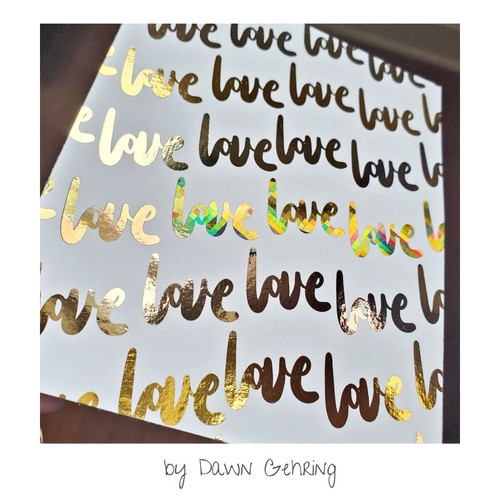 love love love love
e love love love love l
ve love love love love l
e love love love love l
love love love love l
love love love lo
by Dawn Gehring